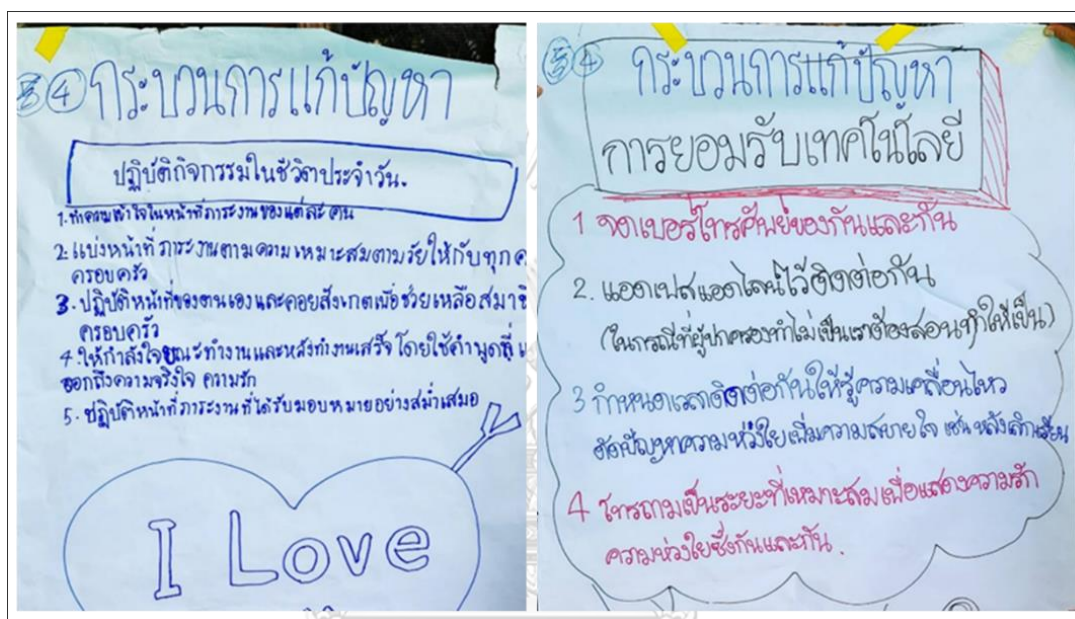 ④ กระบวนการแก้ปัญหา
ปฏิบัติกิจกรรมในชีวิตประจำวัน.
1. ทำความเข้าใจในหน้าที่ภาระงานของแต่ละคน
2. แบ่งหน้าที่ ภาระงานตามความเหมาะสมตามวัยให้กับทุกค
ครอบครัว
3. ปฏิบัติหน้าที่ของตนเองและคอยสังเกตเพื่อช่วยเหลือสมาชิ
ครอบครัว
4. ให้กำลังใจขณะทำงานและหลังทำงานเสร็จ โดยใช้คำพูดที่
ออกถึงความจริงใจ ความรัก
5. ปฏิบัติหน้าที่ภาระงานที่ได้รับมอบหมายอย่างสม่ำเสมอ
I Love
④ กระบวนการแก้ปัญหา
การยอมรับเทคโนโลยี
1 จดเบอร์โทรศัพย์ของกันและกัน
2. แอดเฟสแอดไลน์ไว้ติดต่อกัน
(ในกรณีที่ผู้ปกครองทำไม่เป็นเราต้องสอนทำให้เป็น)
3 กำหนดเวลาติดต่อกันให้รู้ความเคลื่อนไหว
ตัดปัญหาความห่วงใยเพิ่มความสบายใจ เช่น หลังเลิกเรียน
4 โทรถามเป็นระยะที่เหมาะสมเพื่อแสดงความรัก
ความห่วงใยซึ่งกันและกัน.